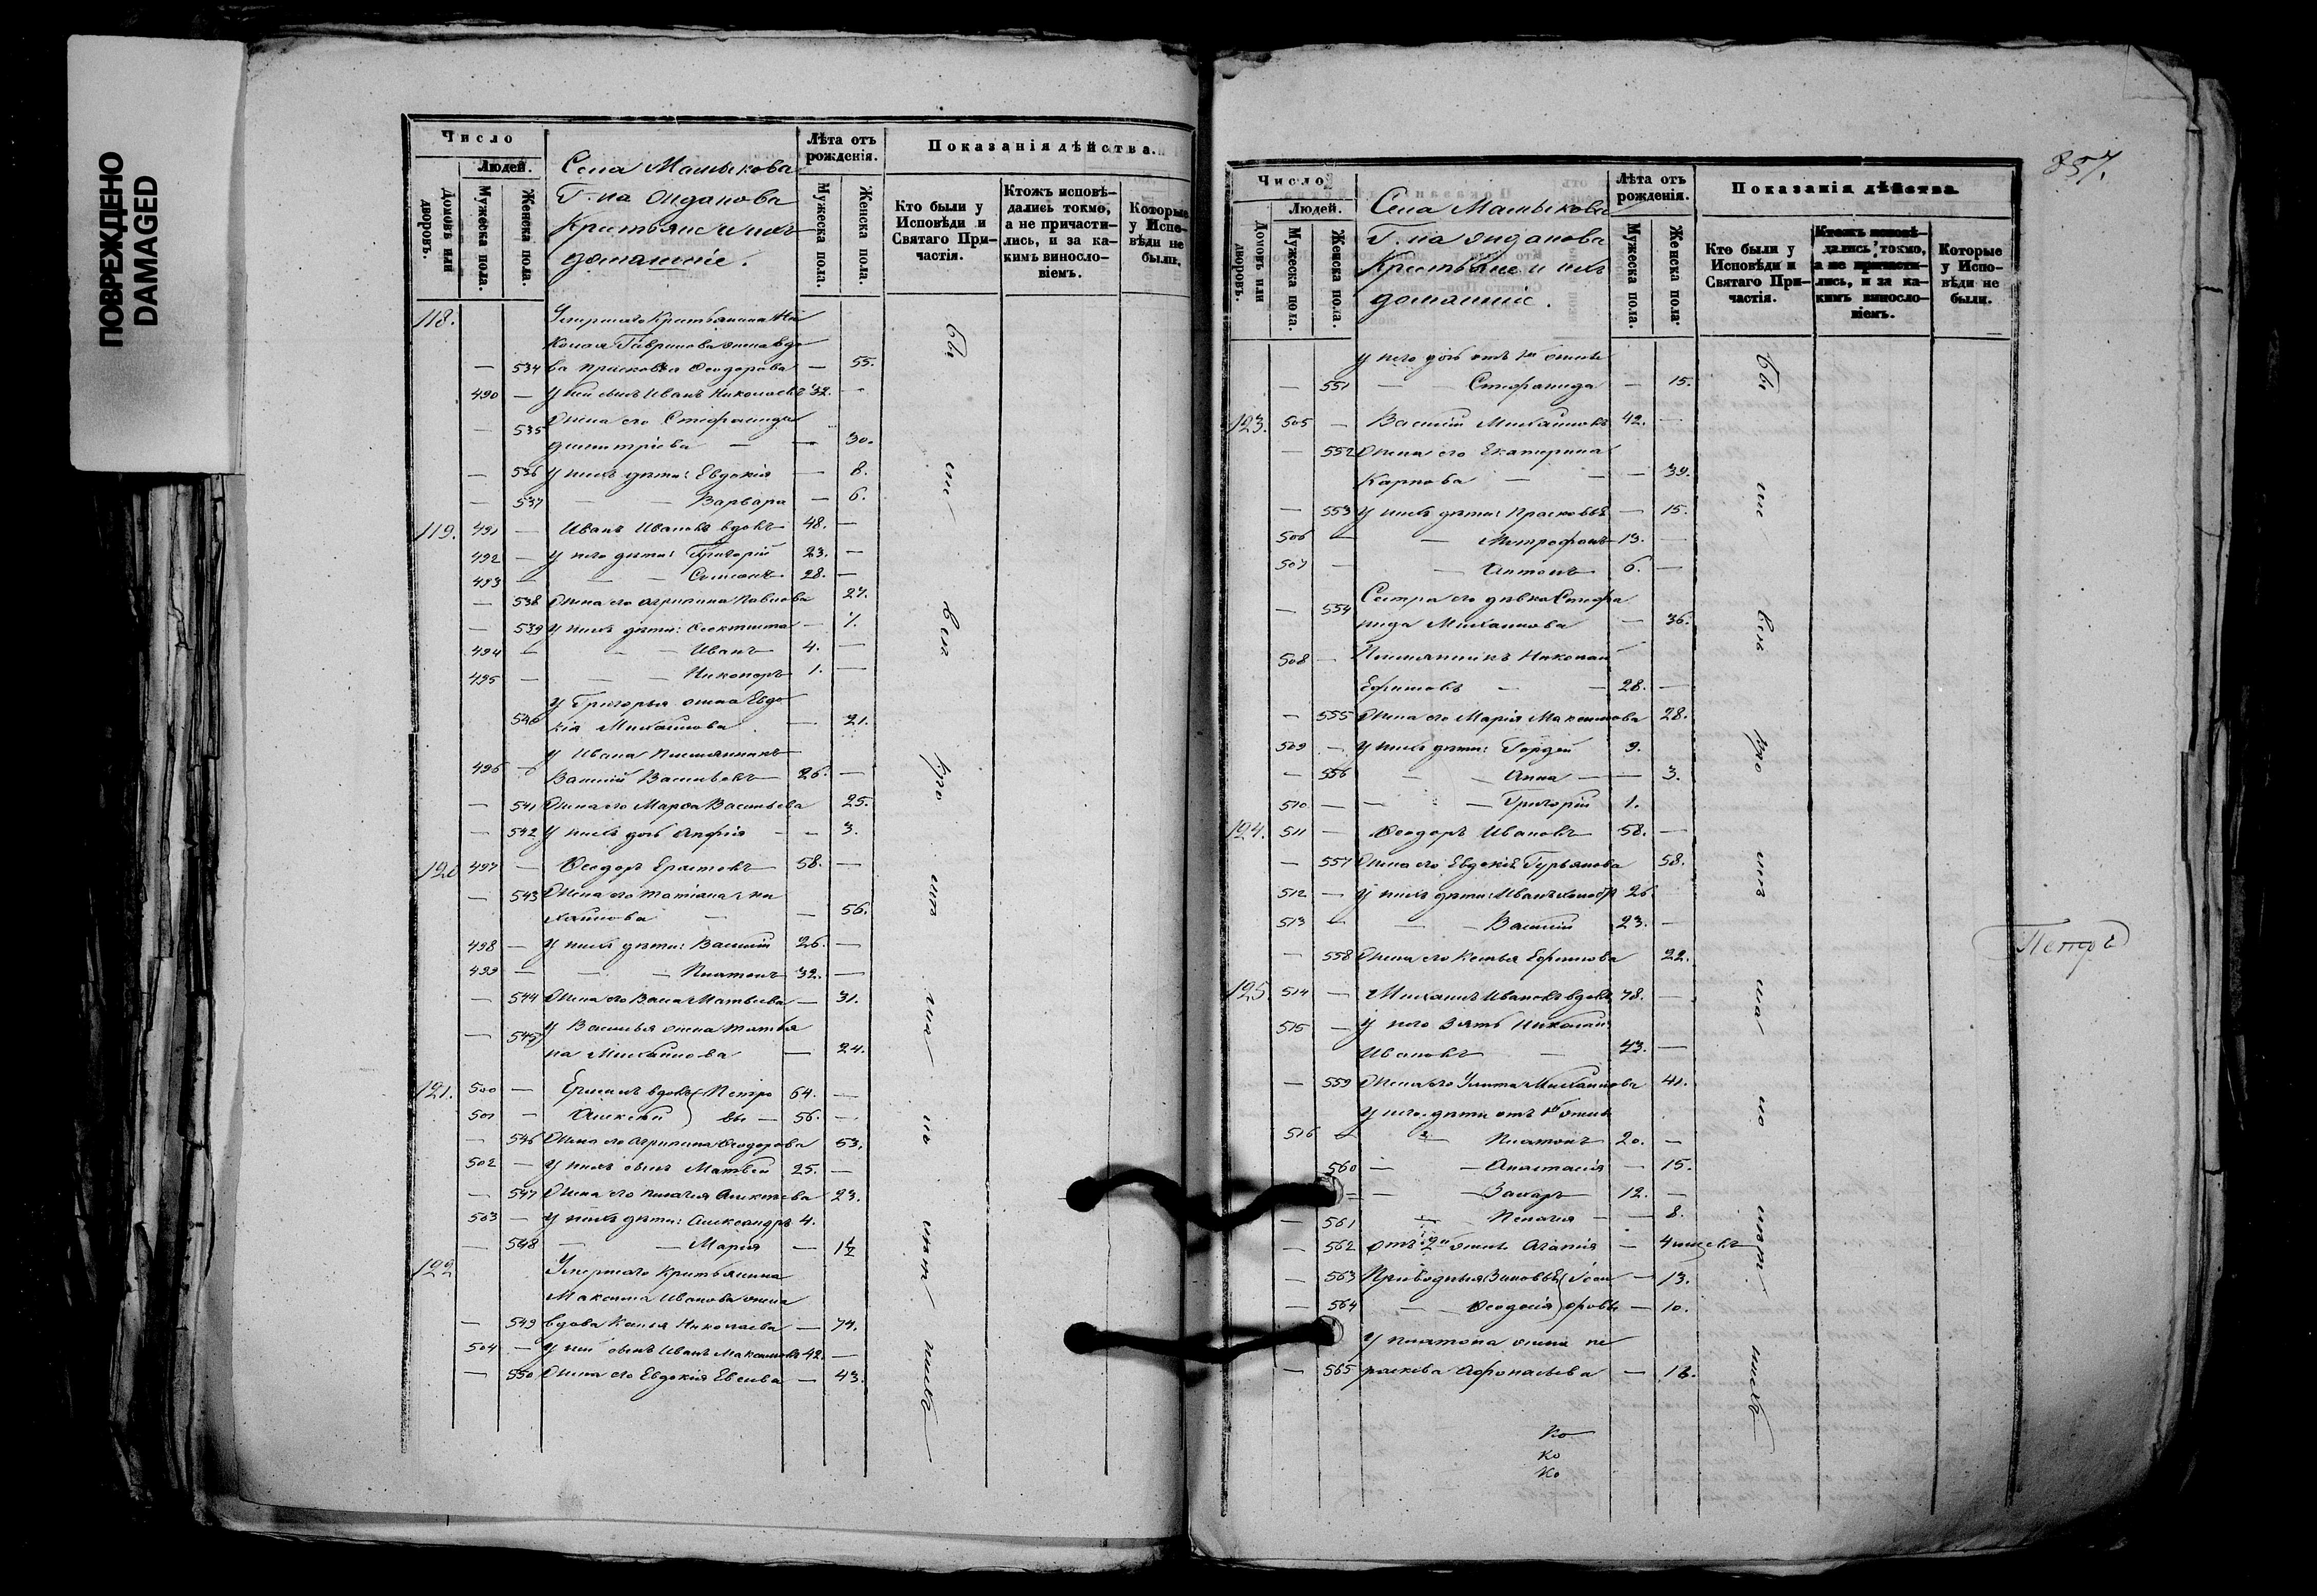 ПОВРЕЖДЕНО
DAMAGED
Число
Людей.
Домовъ или дворовъ.
Мужеска пола.
Женска пола.
Села Мамыкова
Г. на Жданова
Крестьяне и ихъ
домашніе.
Лѣта отъ рожденія.
Мужеска пола.
Женска пола.
Показанія дѣйства.
Кто были у Исповѣди и Святаго При-частія.
Ктожъ исповѣ-дались токмо, а не причасти-лись, и за ка-кимъ виносло-віемъ.
Которые у Испо-вѣди не были.
118.
Умершаго Крестьянина Ни
колая Гаврилова жена вдо
— 534 ва Прасковья Ѳеодорова — 55.
490 — У ней сынъ Иванъ Николаевъ 32. —
Жена его Стефанида
— 535 Димитріева — — 30.
— 536 У нихъ дѣти: Евдокія — 8.
— 537 — — Варвара — 6.
119. 491 — Иванъ Ивановъ вдовъ 48. —
492 — У него дѣти: Григорій 23. —
493 — — — Симеонъ 28. —
— 538 Жена его Агрипина Павлова 27.
— 539 У нихъ дѣти: Ѳеоктиста — 7.
494 — — — Иванъ 4. —
495 — — — Никаноръ 1. —
У Григорья жена Евдо
540 кія Михайлова — 21.
У Ивана племянникъ
496 — Василій Васильевъ 26. —
— 541 Жена его Марѳа Васильева 25.
— 542 У нихъ дочь — — 3.
120 497 — Ѳеодоръ 58. —
— 543 Жена его Татіана Ми
хайлова — — 56.
498 — У нихъ дѣти: Василій 26. —
499 — — — Платонъ 32. —
— 544 Жена его Васа Матвѣева — 31.
У Василья жена Татья
— 545 на Михайлова — 24.
121. 500 — вдовъ Петро 64. —
501 — Алексѣй вы — 56. —
— 546 Жена его Агрипина Ѳеодорова 53.
502 — У нихъ сынъ Матвѣй 25. —
— 547 Жена его Пелагея Алексѣева 23.
503 — У нихъ дѣти: Александръ 4.
— 548 — — Марія — 1½
122 Умершаго Крестьянина
Максима Иванова жена
— 549 вдова Николаева — 74.
504 — У ней сынъ Иванъ Максимовъ 42. —
— 550 Жена его Евдокія — 43
бы ли всѣ кро мѣ ма ло лѣт нихъ
857.
Число
Людей.
Домовъ или дворовъ.
Мужеска пола.
Женска пола.
Села Мамыкова
Г. на Жданова
Крестьяне и ихъ
домашніе.
Лѣта отъ рожденія.
Мужеска пола.
Женска пола.
Показанія дѣйства.
Кто были у Исповѣди и Святаго При-частія.
Ктожъ исповѣ-дались токмо, а не причасти-лись, и за ка-кимъ виносло-віемъ.
Которые у Испо-вѣди не были.
У него дочь отъ 1й жены
— 551 — — Стефанида — 15.
123. 505 — Василій Михайловъ 42. —
— 552 Жена его Екатерина
Карпова — — 39.
— 553 У нихъ дѣти: Прасковья — 15.
506 — — Митрофанъ 13. —
507 — — Антонъ 6. —
Сестра его дѣвка Стефа
— 554 нида Михайлова — 36.
508 — Племянникъ Николай
Ефимовъ — — 28. —
— 555 Жена его Марія Максимова 28.
509 — У нихъ дѣти: Гордей 9.
— 556 — — Анна — — 3.
510 — — — Григорій 1.
124. 511 — Ѳеодоръ Ивановъ 58. —
— 557 Жена его Евдокія Гурьянова 58.
512 — У нихъ дѣти: Иванъ 26
513 — — — Василій 23. —
— 558 Жена его Ксенья Ефимова 22.
125. 514 — Михаилъ Ивановъ вдовъ 78. —
515 — У него зять Николай
Ивановъ — 43. —
— 559 Жена его Улита Михайлова 41.
У него дѣти отъ 1й жены
516 — — Платонъ 20. —
560 — — Анастасія — 15.
— — Захаръ 12. —
— 561 — Пелагея — 8.
— 562 отъ 2й жены Агафія — 4
— 563 Приводныя Зиновья — 13.
— 564 — — Ѳеодосія — 10.
У Платона жена Па
— 565 раскева Афонасьева — 18.
Ко
Ко
Ко
бы ли всѣ кро мѣ ма ло лѣт нихъ
Петръ